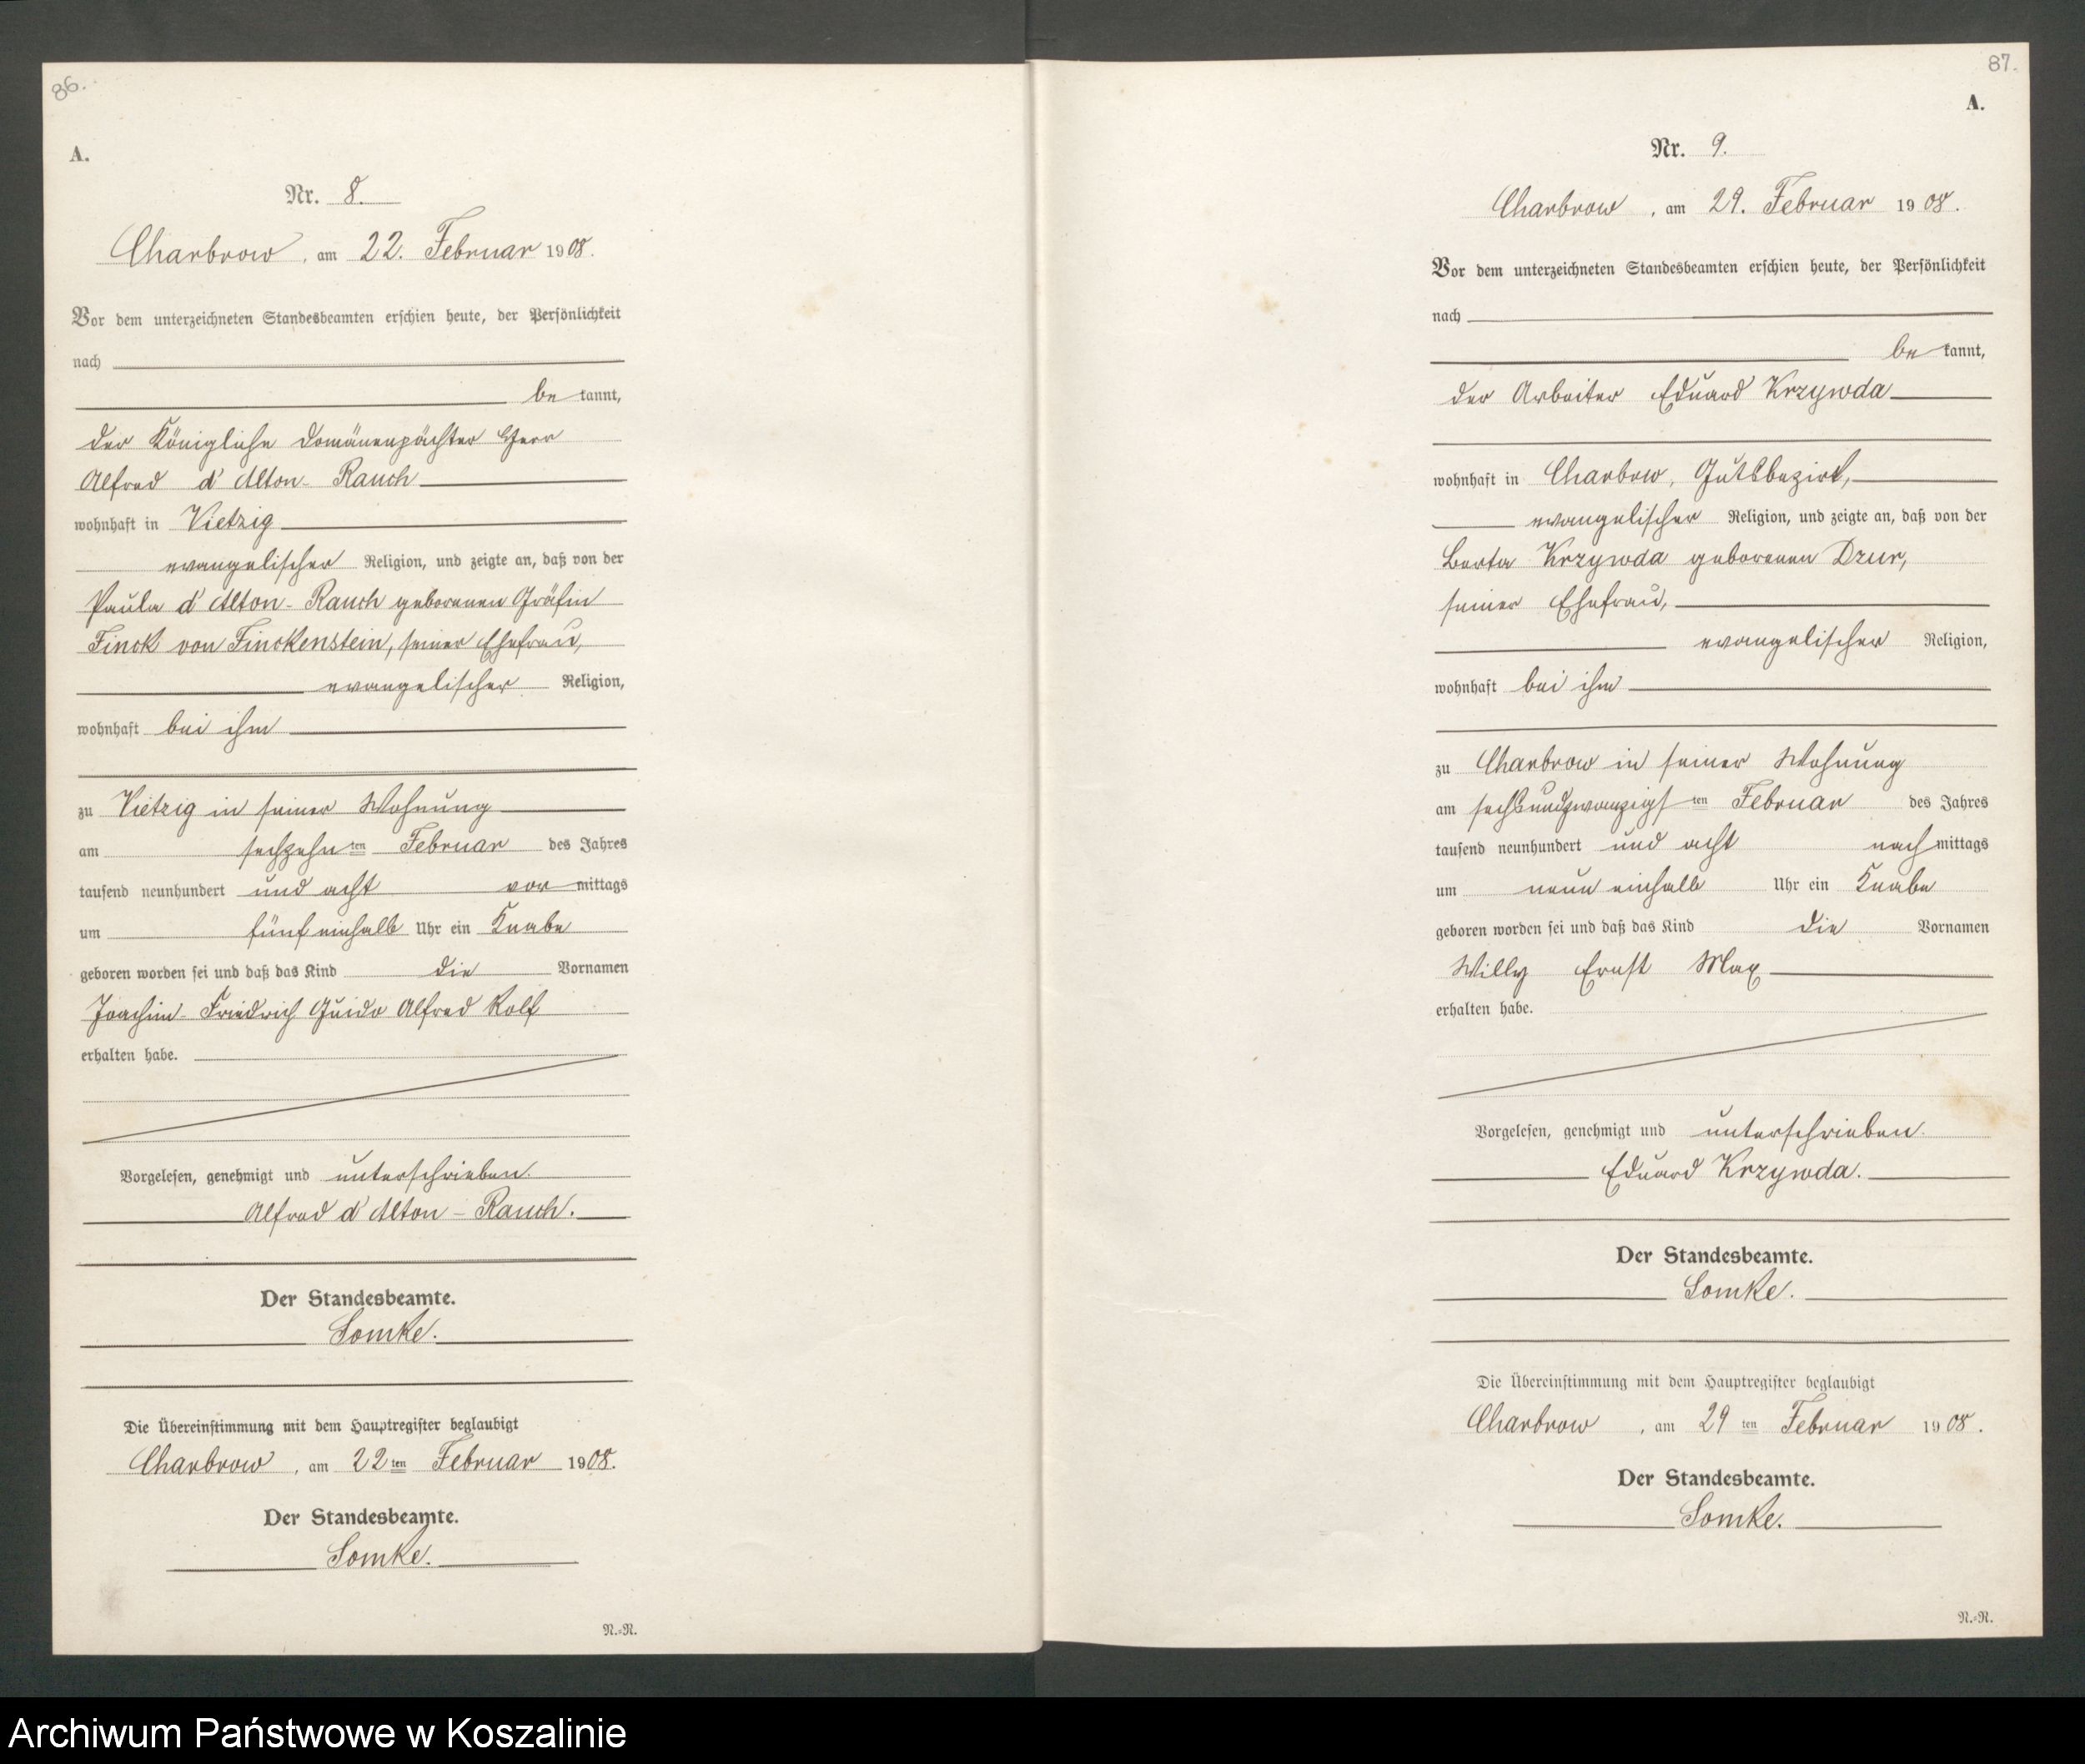 86.
A.
Nr. 8.
Charbrow, am 22. Februar 1908.
Vor dem unterzeichneten Standesbeamten erschien heute, der Persönlichkeit
nach
be kannt,
der Königliche Domänenpächter Herr
Alfred d'Alton-Rauch
wohnhaft in Vietzig
evangelischer Religion, und zeigte an, daß von der
Paula d'Alton-Rauch geborenen Gräfin
Finck von Finckenstein, seiner Ehefrau,
evangelischer Religion,
wohnhaft bei ihm
zu Vietzig in seiner Wohnung
am sechzehnten Februar des Jahres
tausend neunhundert und acht vor mittags
um fünf einhalb Uhr ein Knabe
geboren worden sei und daß das Kind die Vornamen
Joachim-Friedrich Guido Alfred Rolf
erhalten habe.
Vorgelesen, genehmigt und unterschrieben.
Alfred d'Alton-Rauch.
Der Standesbeamte.
Somke.
Die Übereinstimmung mit dem Hauptregister beglaubigt
Charbrow, am 22ten Februar 1908.
Der Standesbeamte.
Somke.
N.=N.
87.
A.
Nr. 9.
Charbrow, am 29. Februar 1908.
Vor dem unterzeichneten Standesbeamten erschien heute, der Persönlichkeit
nach
be kannt,
der Arbeiter Eduard Krzywda
wohnhaft in Charbow, Gutsbezirk,
evangelischer Religion, und zeigte an, daß von der
Berta Krzywda geborenen Dzur,
seiner Ehefrau,
evangelischer Religion,
wohnhaft bei ihm
zu Charbrow in seiner Wohnung
am sechsundzwanzigsten Februar des Jahres
tausend neunhundert und acht nach mittags
um neun einhalb Uhr ein Knabe
geboren worden sei und daß das Kind die Vornamen
Willy Ernst Max
erhalten habe.
Vorgelesen, genehmigt und unterschrieben.
Eduard Krzywda.
Der Standesbeamte.
Somke.
Die Übereinstimmung mit dem Hauptregister beglaubigt
Charbrow, am 29ten Februar 1908.
Der Standesbeamte.
Somke.
N.=N.
Archiwum Państwowe w Koszalinie